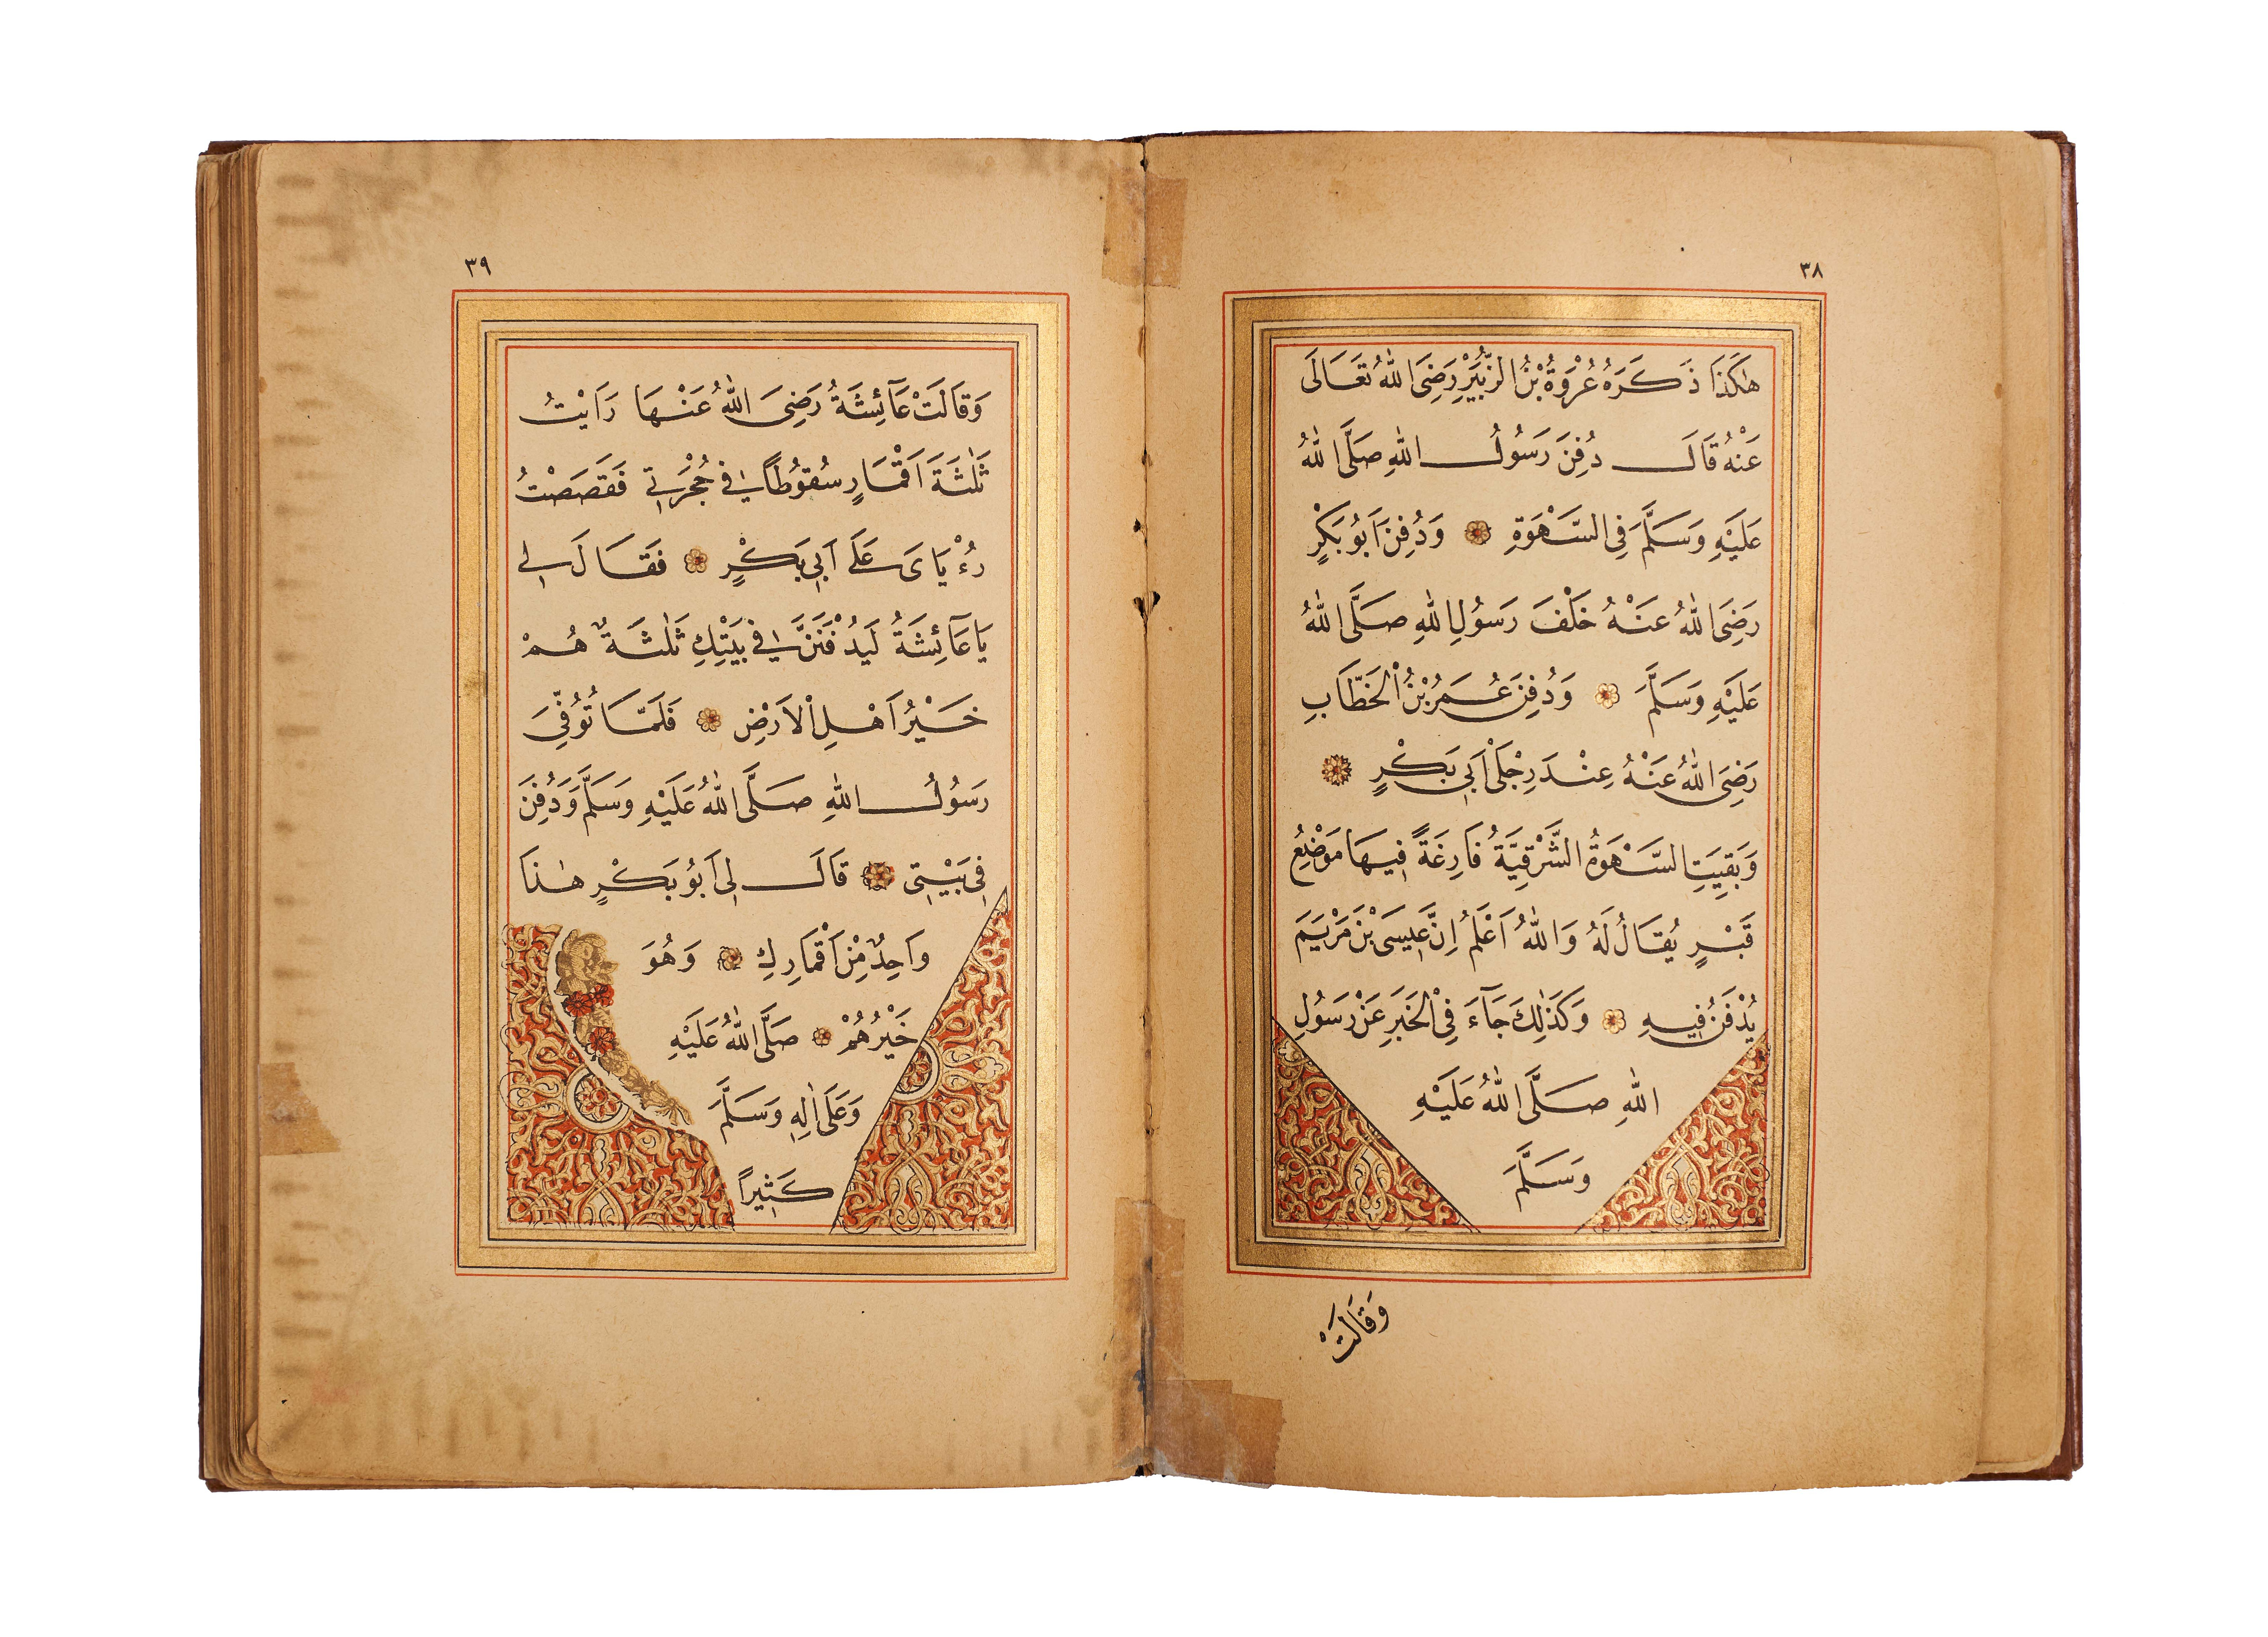 ٣٨
هٰكَذَا ذَكَرَهُ عُرْوَةُ بْنُ الزُّبَيْرِ رَضِىَ اللّٰهُ تَعَالَى
عَنْهُ قَالَ دُفِنَ رَسُولُ اللّٰهِ صَلَّى اللّٰهُ
عَلَيْهِ وَسَلَّمَ فِى السَّهْوَةِ وَدُفِنَ اَبُو بَكْرٍ
رَضِىَ اللّٰهُ عَنْهُ خَلْفَ رَسُولِ اللّٰهِ صَلَّى اللّٰهُ
عَلَيْهِ وَسَلَّمَ وَدُفِنَ عُمَرُ بْنُ الْخَطَّابِ
رَضِىَ اللّٰهُ عَنْهُ عِنْدَ رِجْلَىْ اَبِى بَكْرٍ
وَبَقِيَتِ السَّهْوَةُ الشَّرْقِيَّةُ فَارِغَةً فِيهَا مَوْضِعُ
قَبْرٍ يُقَالُ لَهُ وَاللّٰهُ اَعْلَمُ اِنَّ عِيسَى بْنَ مَرْيَمَ
يُدْفَنُ فِيهِ وَكَذٰلِكَ جَآءَ فِى الْخَبَرِ عَنْ رَسُولِ
اللّٰهِ صَلَّى اللّٰهُ عَلَيْهِ
وَسَلَّمَ
وَقَالَتْ
٣٩
وَقَالَتْ عَآئِشَةُ رَضِىَ اللّٰهُ عَنْهَا رَاَيْتُ
ثَلٰثَةَ اَقْمَارٍ سُقُوطًا فِى حُجْرَتِى فَقَصَصْتُ
رُءْيَاىَ عَلَى اَبِى بَكْرٍ فَقَالَ لِى
يَا عَآئِشَةُ لَيُدْفَنَنَّ فِى بَيْتِكِ ثَلٰثَةٌ هُمْ
خَيْرُ اَهْلِ الْاَرْضِ فَلَمَّا تُوُفِّىَ
رَسُولُ اللّٰهِ صَلَّى اللّٰهُ عَلَيْهِ وَسَلَّمَ وَدُفِنَ
فِى بَيْتِى قَالَ لِى اَبُو بَكْرٍ هٰذَا
وَاحِدٌ مِنْ اَقْمَارِكِ وَهُوَ
خَيْرُهُمْ صَلَّى اللّٰهُ عَلَيْهِ
وَعَلَى اٰلِهِ وَسَلَّمَ
كَثِيرًا